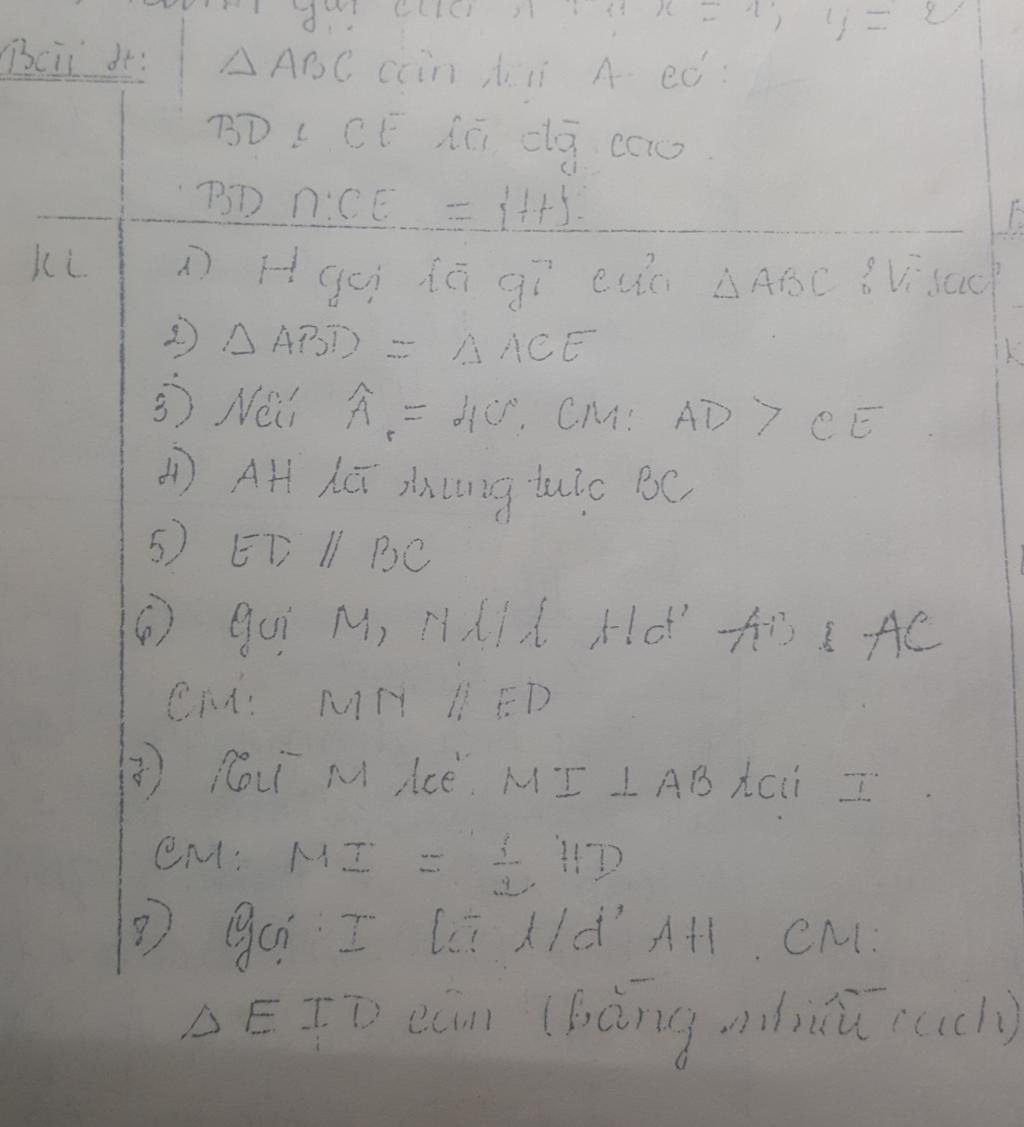 x = 1; y = 2
Bài 4: ΔABC cân tại A có:
BD & CE là đg cao
BD ∩ CE = {H}.
KL 1) H gọi là gì của ΔABC ? Vì sao?
2) ΔABD = ΔACE
3) Nếu Â = 40°. CM: AD > CE
4) AH là trung trực BC
5) ED // BC
6) Gọi M, N l/l t/đ AB & AC
CM: MN // ED
7) Từ M kẻ MI ⊥ AB tại I.
CM: MI = 1/2 HD
8) Gọi I là t/đ AH. CM:
Δ EID cân (bằng nhiều cách)